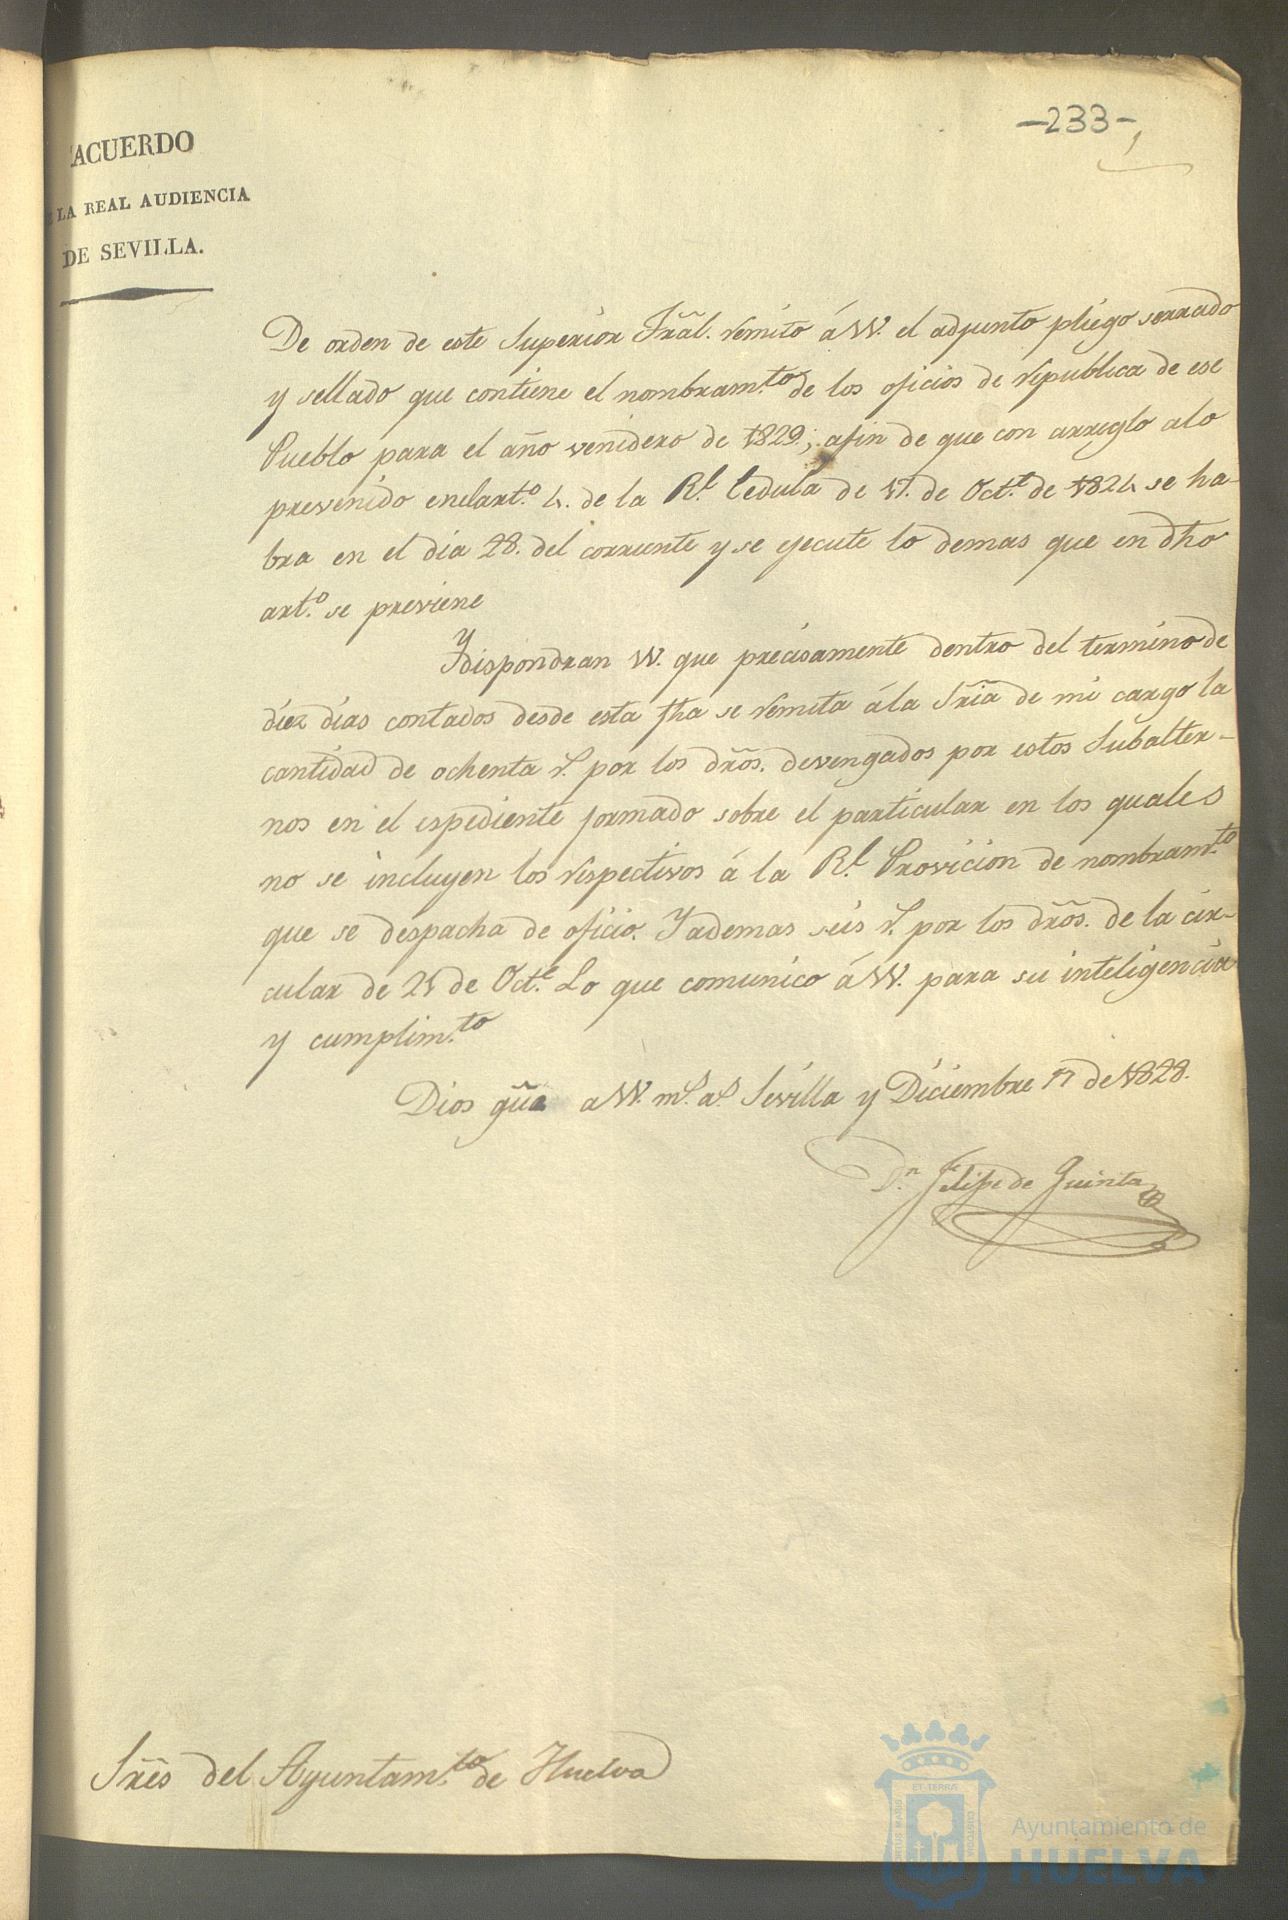 -233-
ACUERDO
LA REAL AUDIENCIA
DE SEVILLA.
De orden de este Superior Trãl. remito á VV. el adjunto pliego serrado
y sellado que contiene el nombram.to de los oficios de republica de ese
Pueblo para el año venidero de 1829; afin de que con arreglo alo
prevenido enelart.o 4. de la R.l Cedula de 17. de Oct.e de 1824 se ha-
bra en el dia 28. del corriente y se ejecute lo demas que en dho
art.o se previene
Y dispondran VV. que precisamente dentro del termino de
diez dias contados desde esta fha se remita á la Sria de mi cargo la
cantidad de ochenta r.s por los drõs. devengados por estos Subalter-
nos en el espediente formado sobre el particular en los quales
no se incluyen los respectivos á la R.l Provicion de nombram.to
que se despacha de oficio. Y ademas seis r.s por los drõs. de la cir-
cular de 25 de Oct.e Lo que comunico á VV. para su inteligencia
y cumplim.to
Dios gũe a VV. m.s a.s Sevilla y Diciembre 17 de 1828.
D.n Felipe de Quinta
Srẽs del Ayuntam.to de Huelva
ET TERRÆ
CUSTODIA
Ayuntamiento de
HUELVA